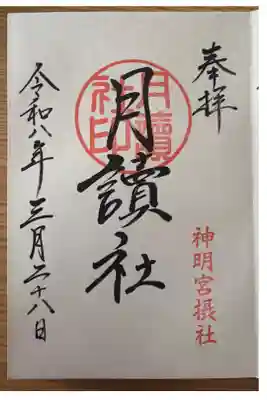 奉拝
神明宮摂社
月讀社
月讀社印
令和八年三月二十八日